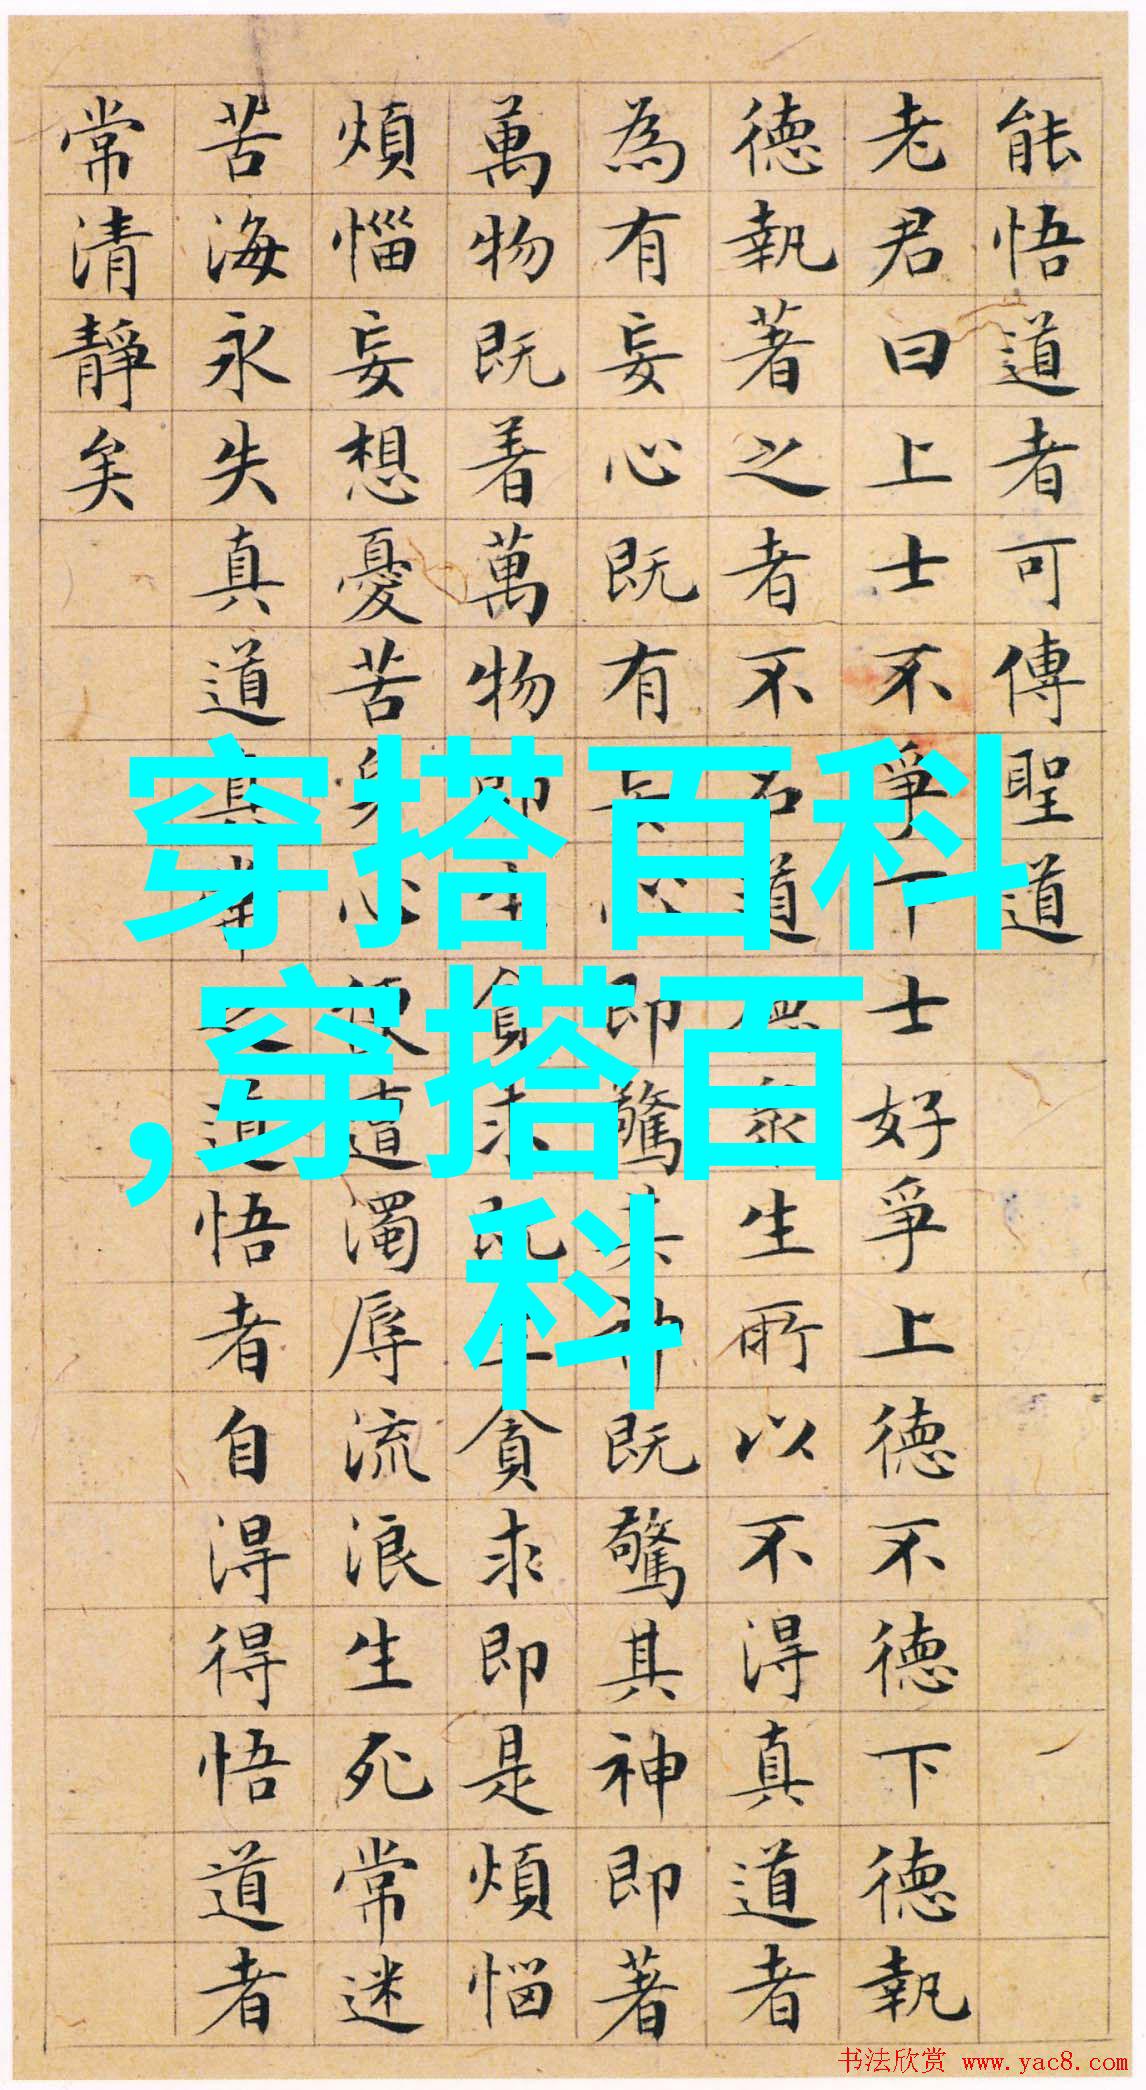 能悟道者可傳聖道
老君曰上士不爭下士好爭上德不德下德執
德執著之者不名道德眾生所以不得真道者
為有妄心既有妄心即驚其神既驚其神即著
萬物既着萬物即生貪求既生貪求即是煩惱
煩惱妄想憂苦身心便遭濁辱流浪生死常迷
苦海永失真道真常之道悟者自得得悟道者
常清靜矣
穿搭百科
,穿搭百
科
书法欣赏 www.yac8.com